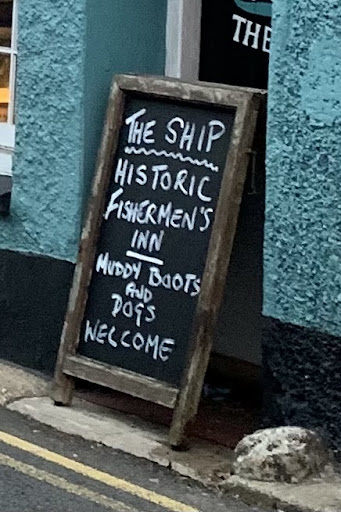 THE
THE SHIP
HISTORIC
FISHERMEN'S
INN
MUDDY BOOTS
AND
DOGS
WELCOME